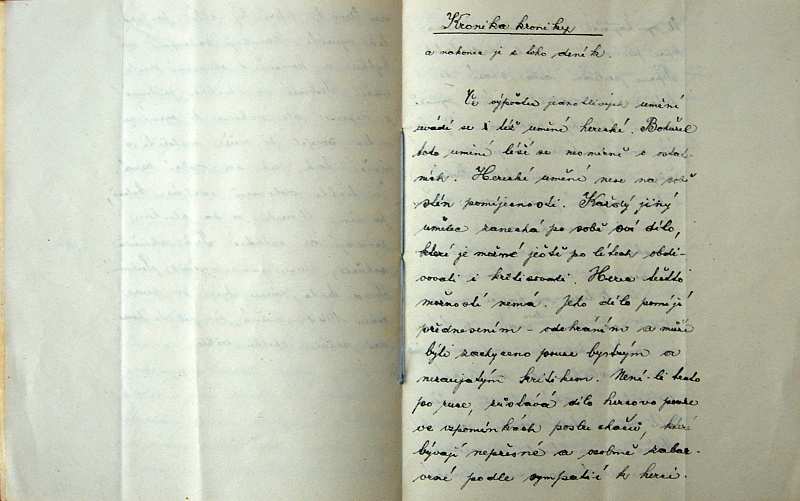 Kronika kroniky
a nakonec je i toho deník.
Ve výpočtu jednotlivých umění
uvádí se i též umění herecké. Bohužel
toto umění liší se nesmírně o ostat-
ních. Herecké umění nese na sobě
stín pomíjejnosti. Každý jiný
umělec zanechá po sobě své dílo,
které je možné ještě po létech obdi-
vovati i kritisovati. Herec těchto
možností nemá. Jeho dílo pomíjí
přednesením - odehráním a může
býti zachyceno pouze bystrým a
nezaujatým kritikem. Není-li tento
po ruce, zůstává dílo hercovo pouze
ve vzpomínkách posluchačů, které
bývají nepřesné a osobně zabar-
vené podle sympatií k herci.